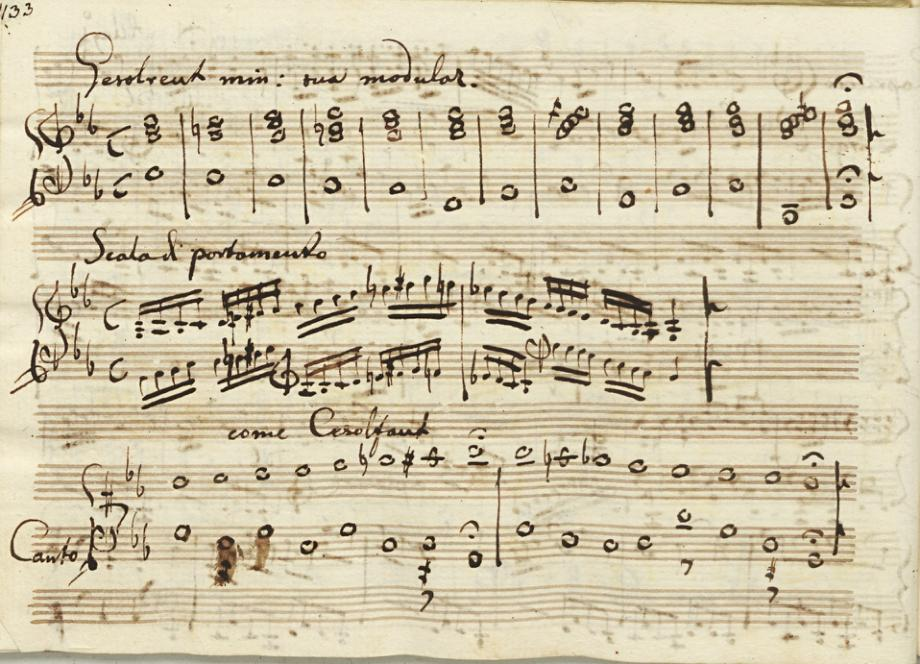 133
Gesolreut min: sua modular.
Scala di portamento
come Cesolfaut
Canto
7 7 7